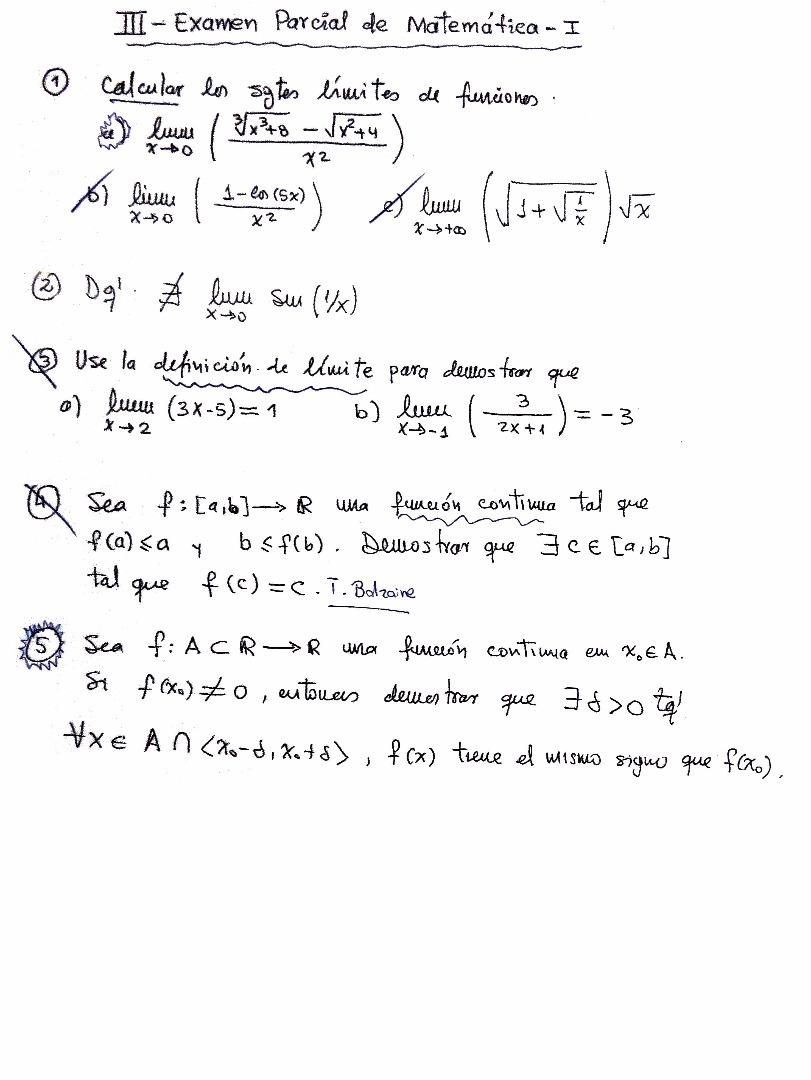 III - Examen Parcial de Matemática - I
① Calcular los sgtes límites de funciones.
a) lim x→0 ( (∛(x³+8) - √(x²+4)) / x² )
b) lim x→0 ( (1-cos(5x)) / x² ) c) lim x→+∞ ( √(1+√(1/x)) ) √x
② Dq'. ∄ lim x→0 sen (1/x)
③ Use la definición de límite para demostrar que
a) lim x→2 (3x-5) = 1 b) lim x→-1 ( 3 / (2x+1) ) = -3
④ Sea f: [a,b] → ℝ una función continua tal que
f(a) ≤ a y b ≤ f(b). Demostrar que ∃ c ∈ [a,b]
tal que f(c) = c. T. Bolzaine
⑤ Sea f: A ⊂ ℝ → ℝ una función continua em x₀ ∈ A.
Si f(x₀) ≠ 0, entonces demostrar que ∃ δ > 0 tq'
∀x ∈ A ∩ <x₀-δ, x₀+δ>, f(x) tiene el mismo signo que f(x₀).